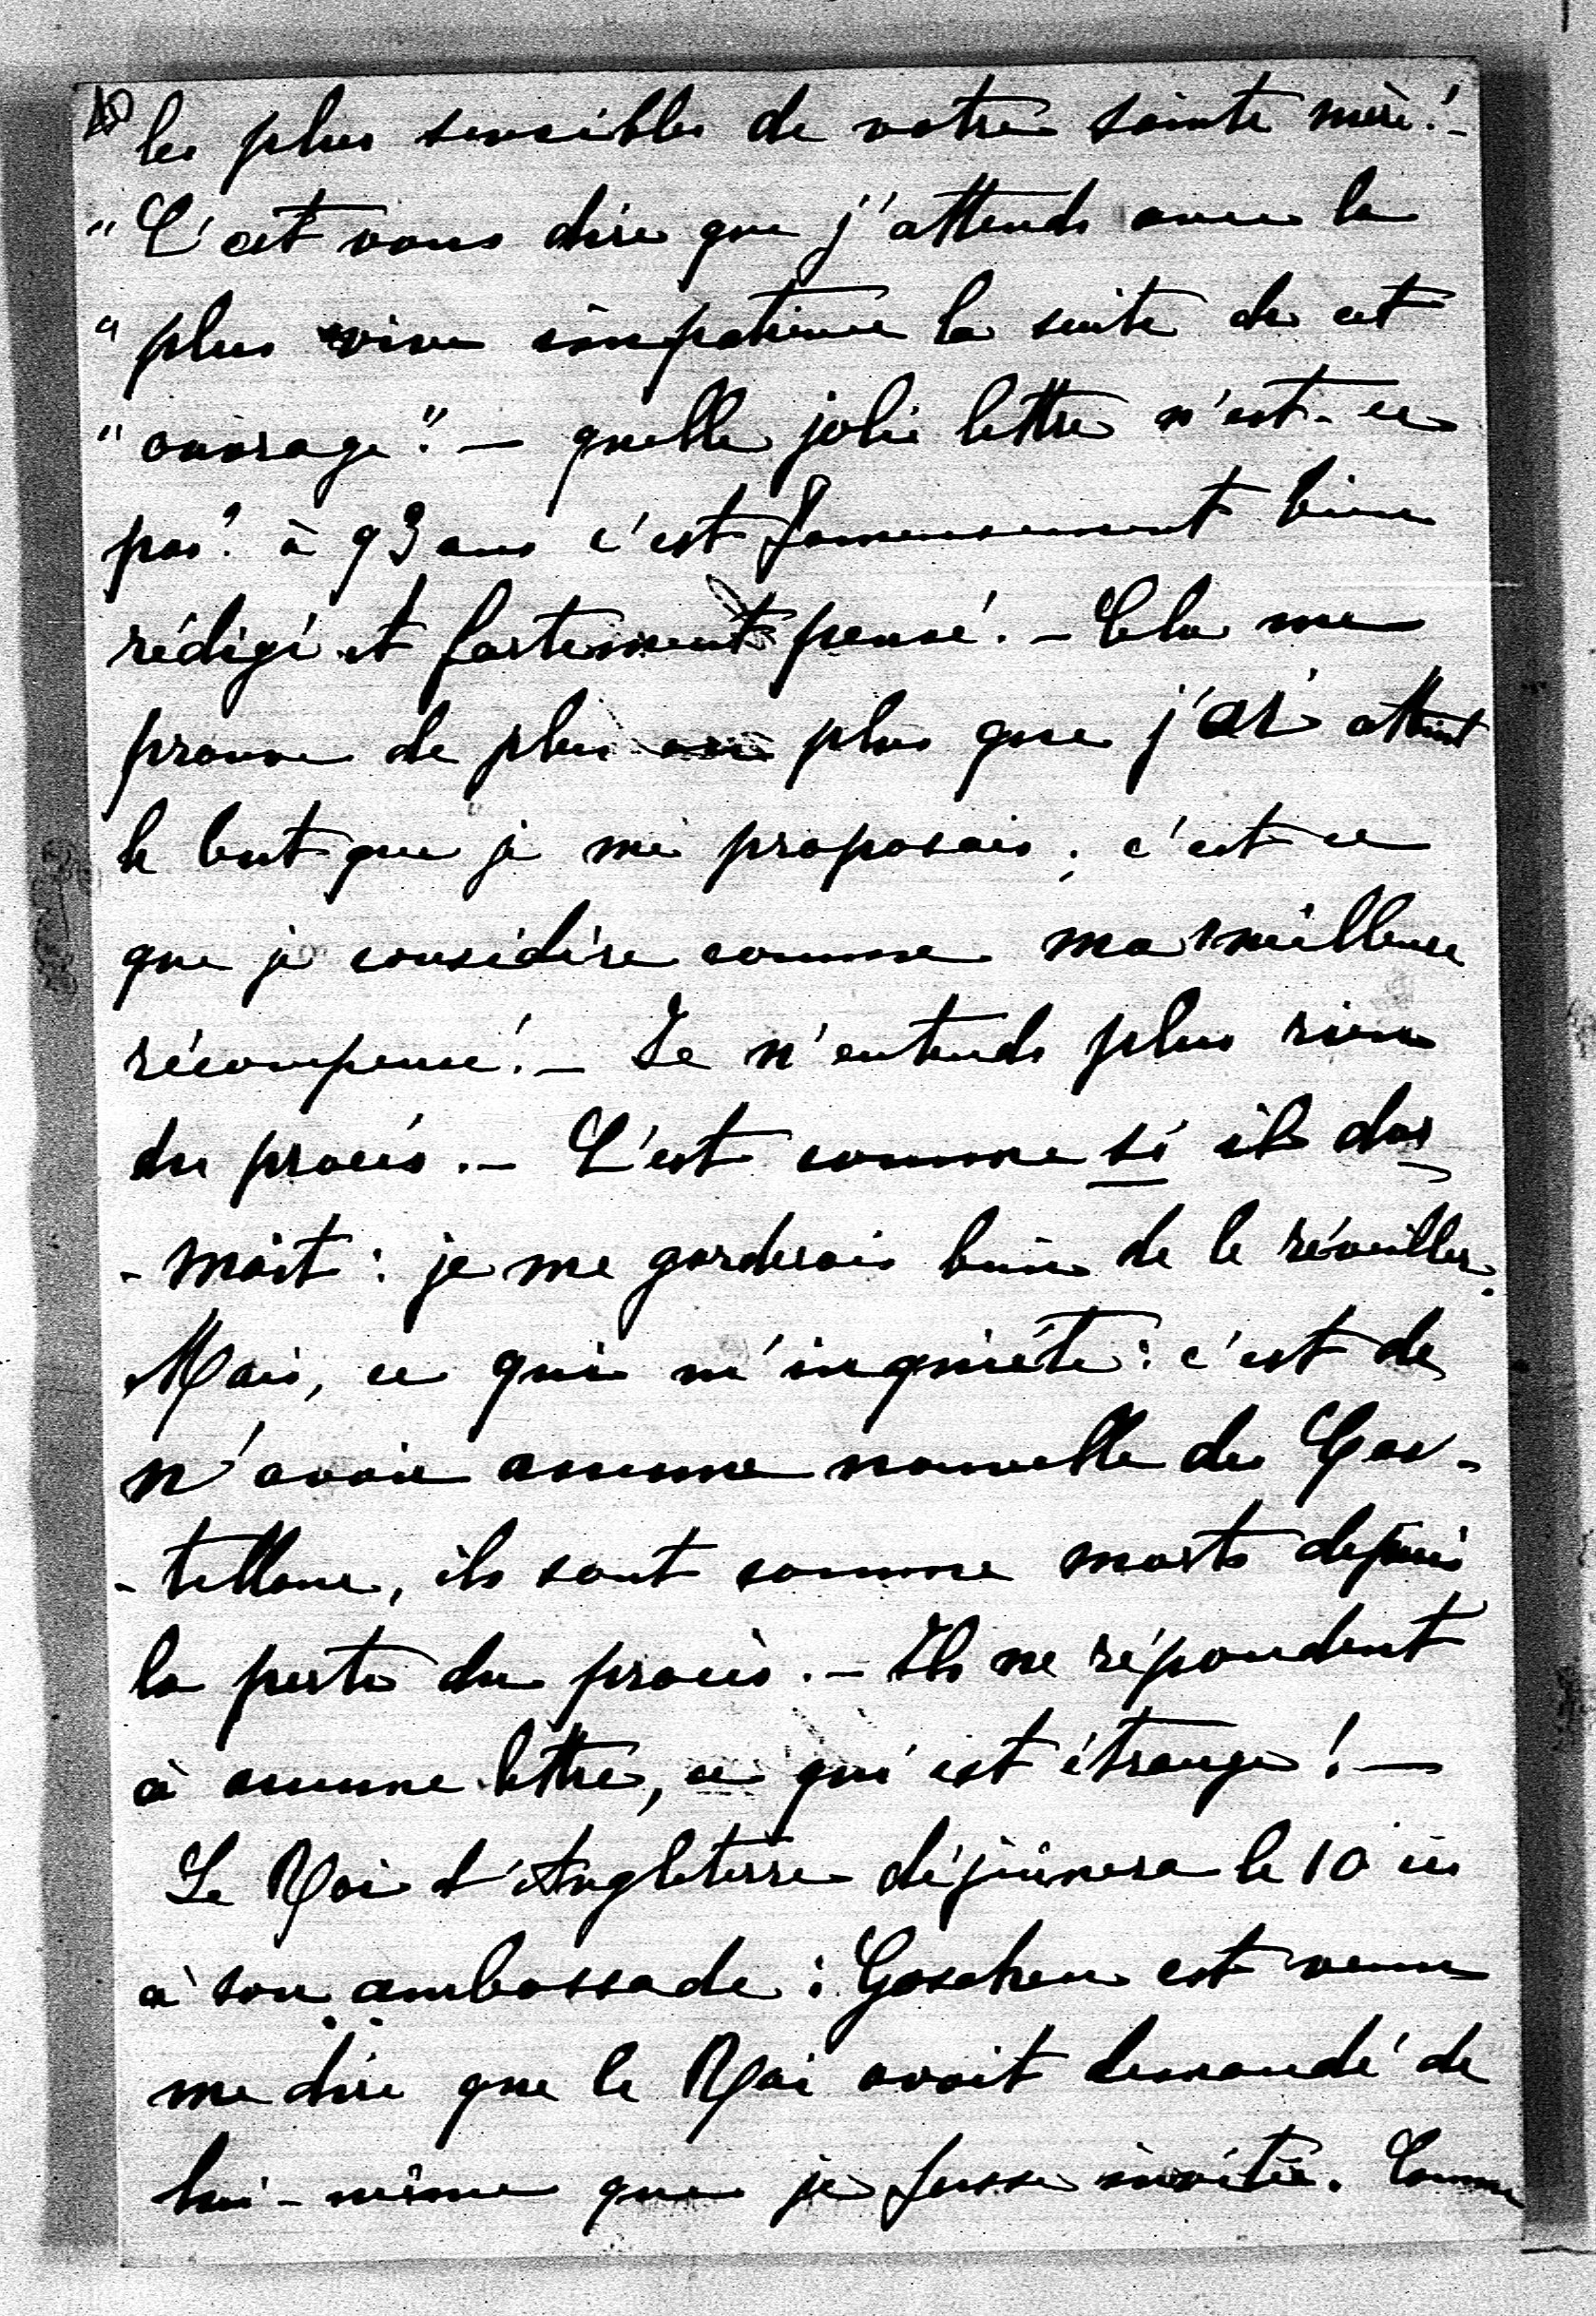 les plus sensibles de votre sainte mère!-
"C'est vous dire que j'attends avec la
"plus vive impatience la suite de cet
"ouvrage". — quelle jolie lettre n'est-ce
pas? à 93 ans c'est fameusement bien
rédigé et fortement pensé. - Cela me
prouve de plus en plus que j'ai atteint
le but que je me proposais; c'est ce
que je considère comme ma meilleure
récompense! - Je n'entends plus rien
du procès. - C'est comme si il dor
-mait: je me garderais bien de le réveiller.
Mais, ce qui m'inquiète: c'est de
n'avoir aucune nouvelle des Cas-
-tellane, ils sont comme morts depuis
la perte du procès. - Ils ne répondent
à aucune lettre, ce qui est étrange! —
Le Roi d'Angleterre déjeunera le 10 ici
à son ambassade: Goschen est venu
me dire que le Roi avait demandé de
lui-même que je fusse invitée. Comme